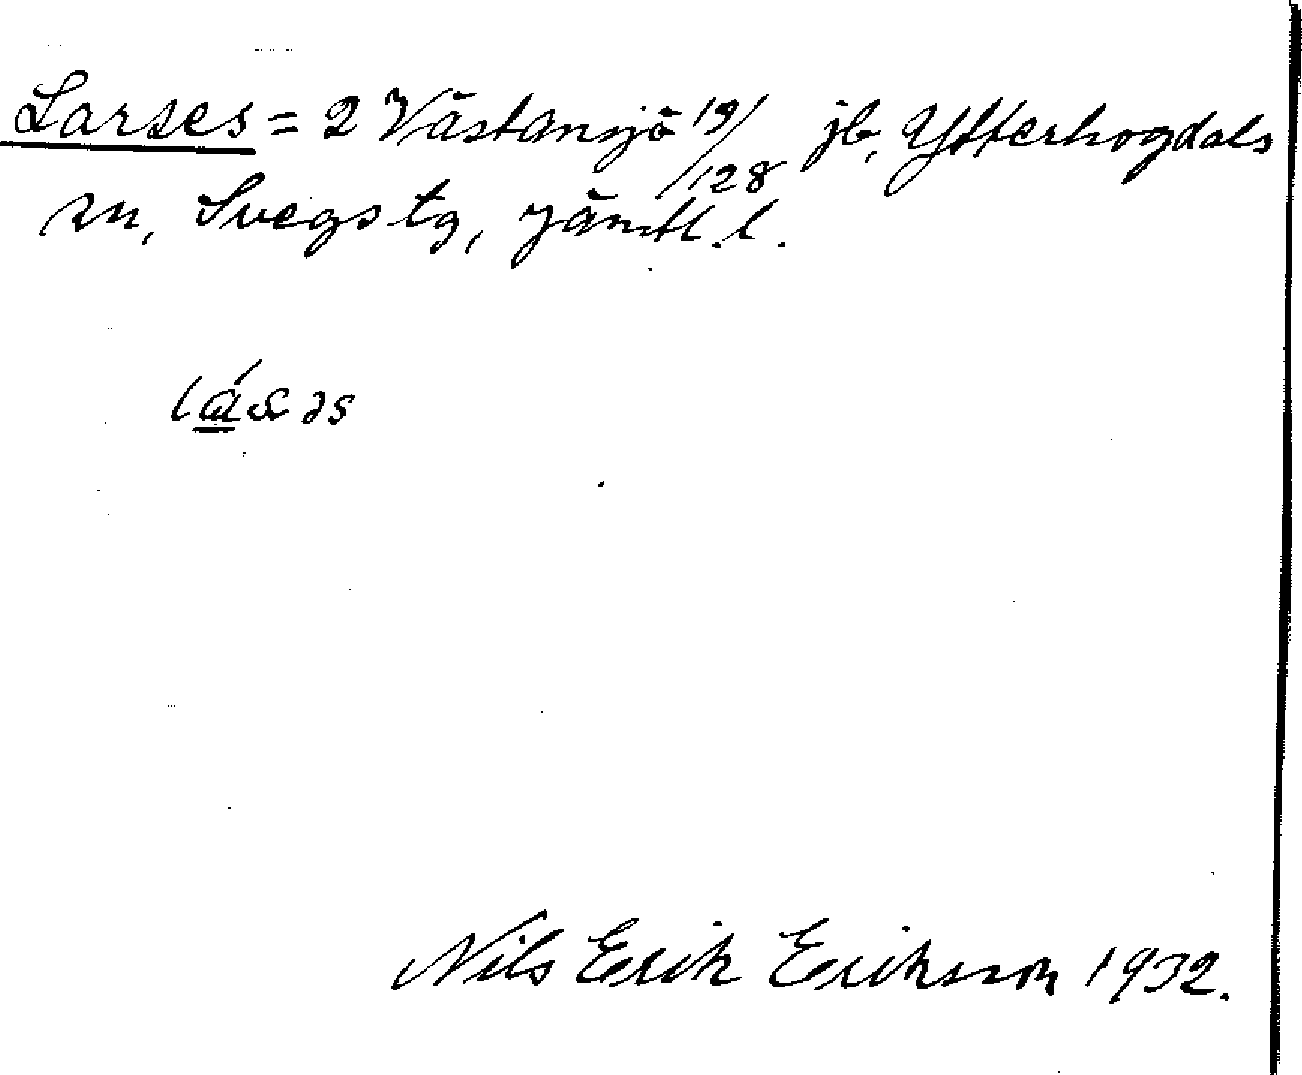 Larses = 2 Västansjö 19/128 jb, Ytterhogdals
sn, Svegs tg, Jämtl. l.
Nils Erik Eriksson 1932.